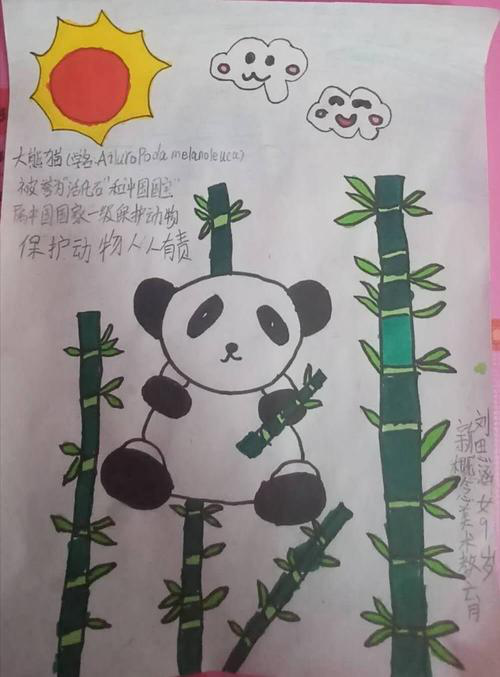 大熊猫(学名:AiluroPoda melanoleuca)
被誉为"活化石"和"中国国宝"
属中国国家一级保护动物
保护动物人人有责
刘思涵 女9岁
新概念美术教育